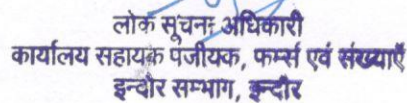 लोक सूचना अधिकारी
कार्यालय सहायक पंजीयक, फर्म्स एवं संख्याएँ
इन्दौर सम्भाग, इन्दौर